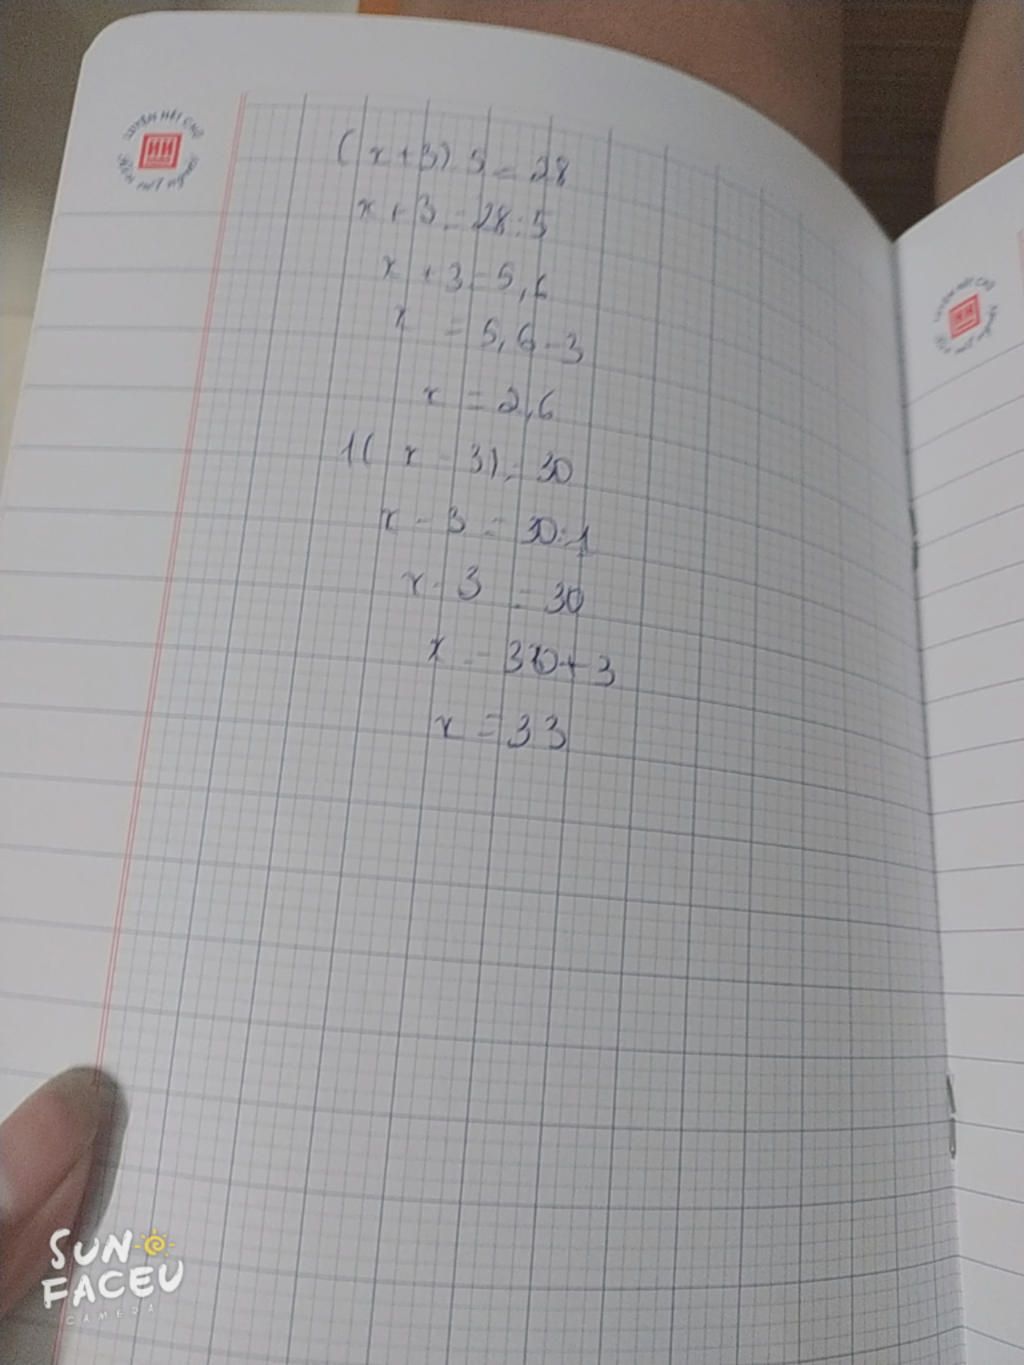 (x+3).5=28
x+3=28:5
x+3=5,6
x=5,6-3
x=2,6
1(x-3)=30
x-3=30:1
x-3=30
x=30+3
x=33
SUN
FACEU
CAMERA